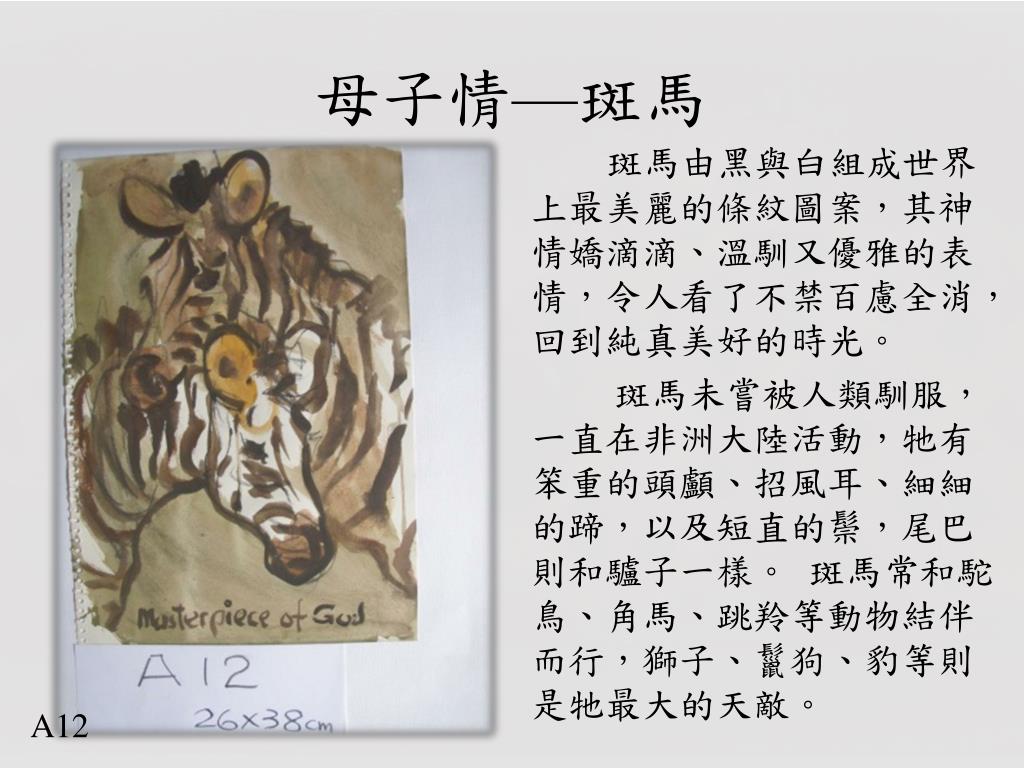 母子情—斑馬
斑馬由黑與白組成世界
上最美麗的條紋圖案，其神
情嬌滴滴、溫馴又優雅的表
情，令人看了不禁百慮全消，
回到純真美好的時光。
斑馬未嘗被人類馴服，
一直在非洲大陸活動，牠有
笨重的頭顱、招風耳、細細
的蹄，以及短直的鬃，尾巴
則和驢子一樣。 斑馬常和駝
鳥、角馬、跳羚等動物結伴
而行，獅子、鬣狗、豹等則
是牠最大的天敵。
Masterpiece of God
A12
26x38cm
A12